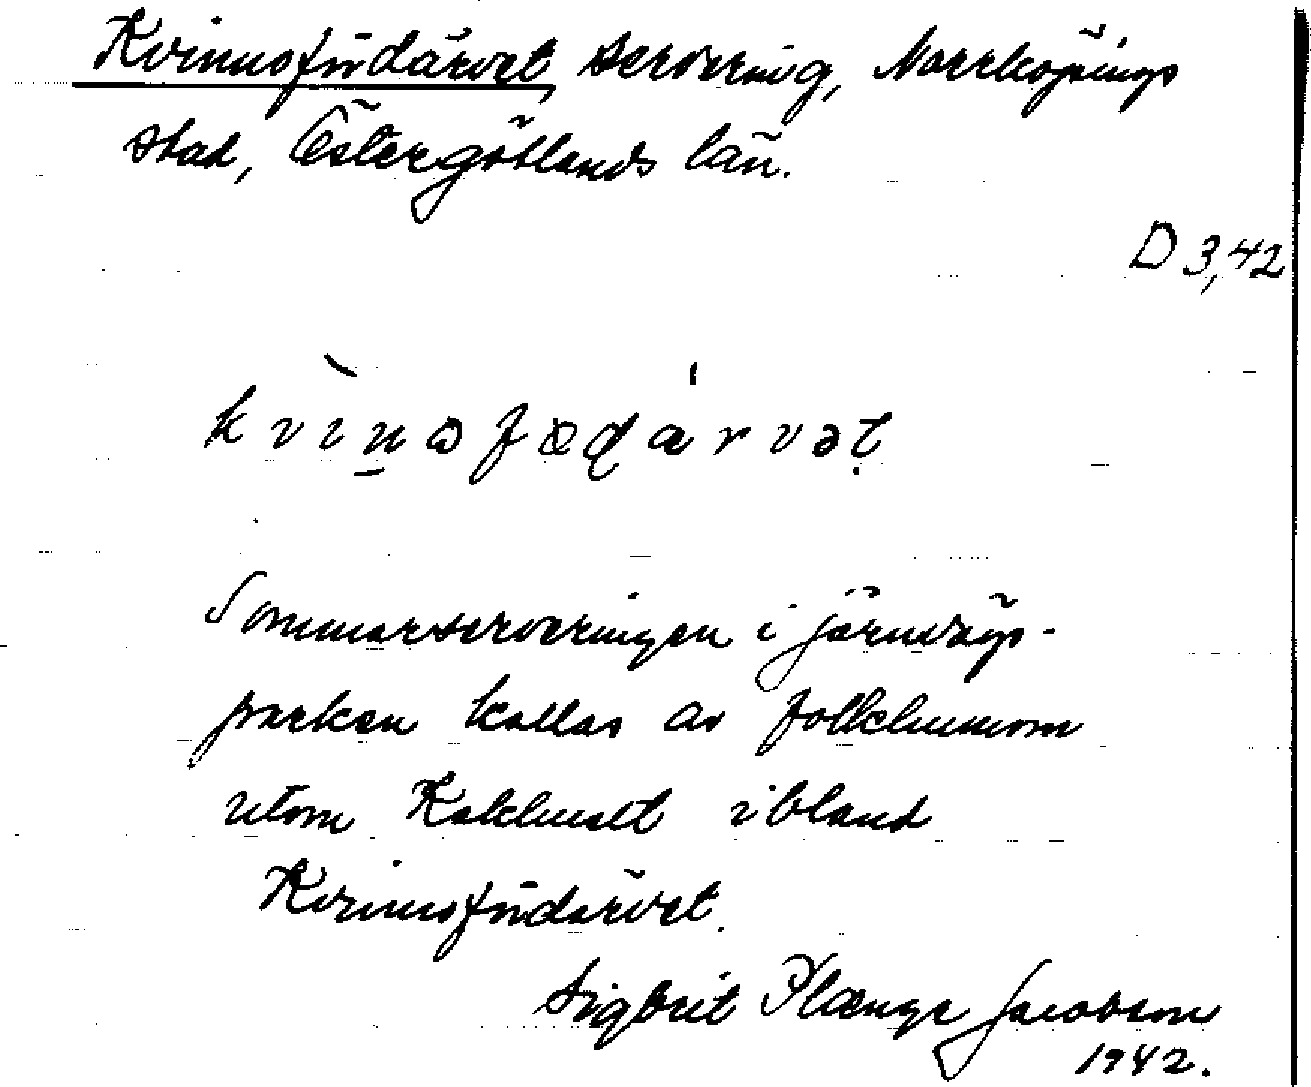 Kvinnofördärvet, servering, Norrköpings
stad, Östergötlands län.
D 3,42
kvinofœḍárvət
Sommarserveringen i järnvägs-
parken kallas av folkhumorn
utom Kalhult ibland
Kvinnofördärvet.
Sigbrit Plænge Jacobson
1942.